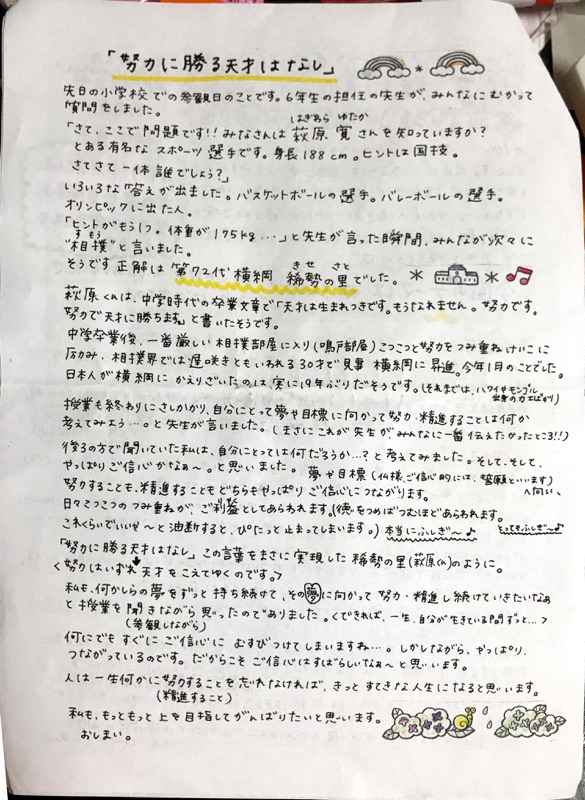 「努力に勝る天才はなし」
先日の小学校での参観日のことです。6年生の担任の先生が、みんなにむかって
質問をしました。
はぎわら ゆたか
「さて、ここで問題です!! みなさんは 萩原 寛 さんを知っていますか?
とある有名な スポーツ 選手です。身長188cm。ヒントは国技。
さてさて一体誰でしょう?」
いろいろな答えが出ました。バスケットボールの選手。バレーボールの選手。
オリンピックに出た人。
「ヒントがもう1つ。体重が175kg…」と先生が言った瞬間、みんなが次々に
すもう
"相撲"と言いました。
きせ さと
そうです正解は 第72代横綱 稀勢の里でした。
萩原くんは、中学時代の卒業文章で「天才は生まれつきです。もうなれません。努力です。
努力で天才に勝ちます」と書いたそうです。
中学卒業後、一番厳しい相撲部屋に入り(鳴戸部屋)こつこつと努力をつみ重ねけいこに
励み、相撲界では遅咲きともいわれる30才で見事 横綱に 昇進。今年1月のことでした。
日本人が横綱に かえりざいたのは実に19年ぶりだそうです。(それまでは、ハワイやモンゴル
出身の力士ばかり)
授業も終わりにさしかかり、自分にとって夢や目標に向かって努力・精進することは何か
考えてみよう…。と先生が言いました。(まさにこれが先生が、みんなに一番伝えたかったところ!!)
後ろの方で聞いていた私は、自分にとっては何だろうか…?と考えてみました。そして、そして、
やっぱりご信心かなぁ〜。と思いました。 夢や目標(仏様、ご信心的には、誓願といいます)
へ向い、
努力することも、精進することもどちらもやっぱり ご信心につながります。
日々こつこつの つみ重ねが、ご利益としてあらわれます。(徳をつめばつむほどあらわれます。
これくらいでいいぜ〜と油断すると、ぴたっと止まってしまいます。) 本当にふしぎ〜♪ とってもふしぎ〜♪
「努力に勝る天才はなし」この言葉をまさに実現した 稀勢の里(萩原くん)のように。
<努力はいずれ天才をこえてゆくのです。>
私も、何かしらの夢をずっと持ち続けて、その夢に向かって努力・精進し続けていきたいなぁ
と授業を聞きながら思ったのでありました。<できれば、一生、自分が生きている間ずっと…>
(参観しながら)
何にでもすぐに ご信心に むすびつけてしまいますね…。しかしながら、やっぱり、
つながっているのです。だからこそご信心はすばらしいなぁ〜と思います。
人は一生何かに努力することを忘れなければ、きっと すてきな人生になると思います。
(精進すること)
私も、もっともっと上を目指してがんばりたいと思います。
おしまい。